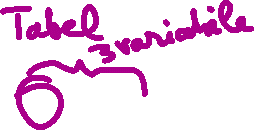 Tabel
3 variabile